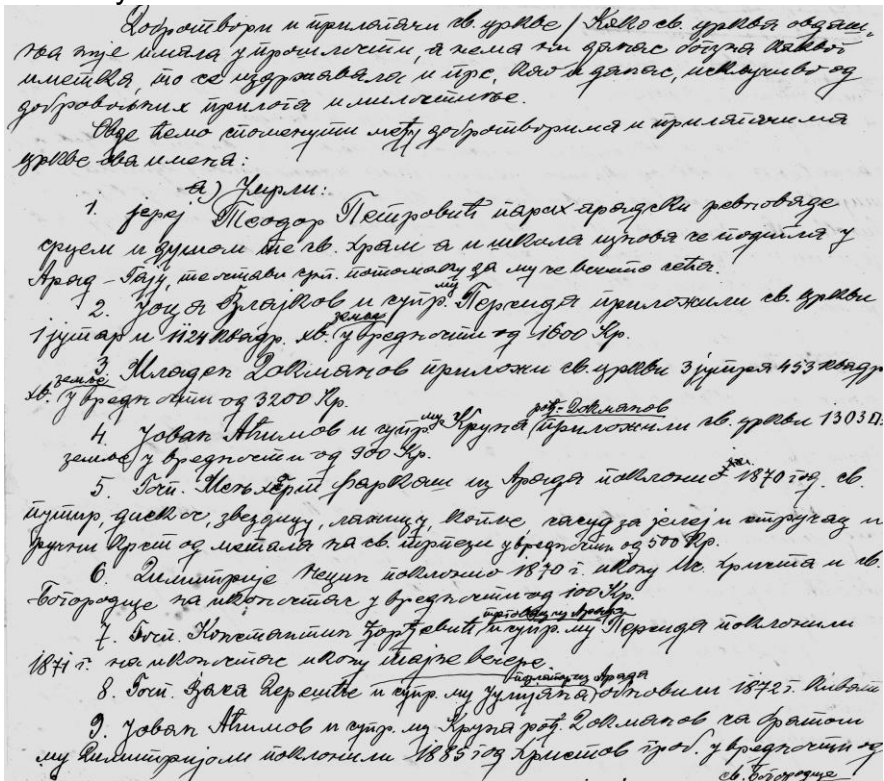 Добротвори и прилагачи св. цркве / Како св. црква овдаш-
ња није имала у прошлости, а нема ни данас богзна каквог
иметка, то се издржавала и пре, као и данас, искључиво од
добровољних прилога и милостиње.
Овде ћемо споменути међу добротворима и прилагачима
цркве ова имена:
а) Умрли:
1. јереј Теодор Петровић парох арадски ревноваде
срцем и душом те св. храм а и школа изнова се подигла у
Арад-Гају, те остави срп. потомству за му се вечито сећа.
2. Јоца Влајков и супр. му Персида приложили св. цркви
1 јутар и 1124 квадр. хв. земље у вредности од 1600 Кр.
3. Младен Докманов приложи св. цркви 3 јутра 453 квадр.
хв. земље у вредности од 3200 Кр.
4. Јован Аћимов и супр. му Круна рођ. Докманов приложили св. цркви 1303 □
земље у вредности од 900 Кр.
5. Госп. Фаркаш из Арада поклонио 1870 год. св.
путир, дискос, звездицу, лажицу, копље, сасуд за јелеј и стручац и
ручни крст од метала на св. трпези у вредности од 500 Кр.
6. Димитрије Нецин поклонио 1870 г. икону Ис. Христа и св.
Богородице на иконостас у вредности од 100 Кр.
7. Госп. Константин Ђорђевић трговац из Арада и супр. му Персида поклонили
1871 г. на иконостас икону тајне вечере.
8. Госп. и супр. му Јулијана из Арада обновили 1872 г.
9. Јован Аћимов и супр. му Круна рођ. Докманов са братом
му Димитријом поклонили 1885 год Христов гроб. у вредности од
св. Богородице